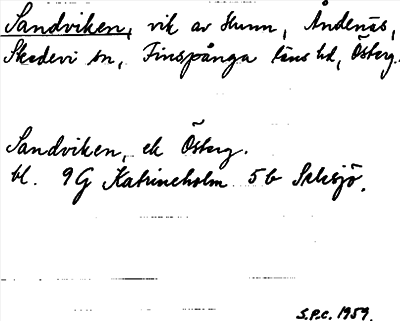 Sandviken, vik av Hunn, Ändenäs,
Skedevi sn, Finspånga läns hd, Österg.
Sandviken, ek Österg.
bl. 9G Katrineholm 5b Salsjö.
S.P.C. 1959.